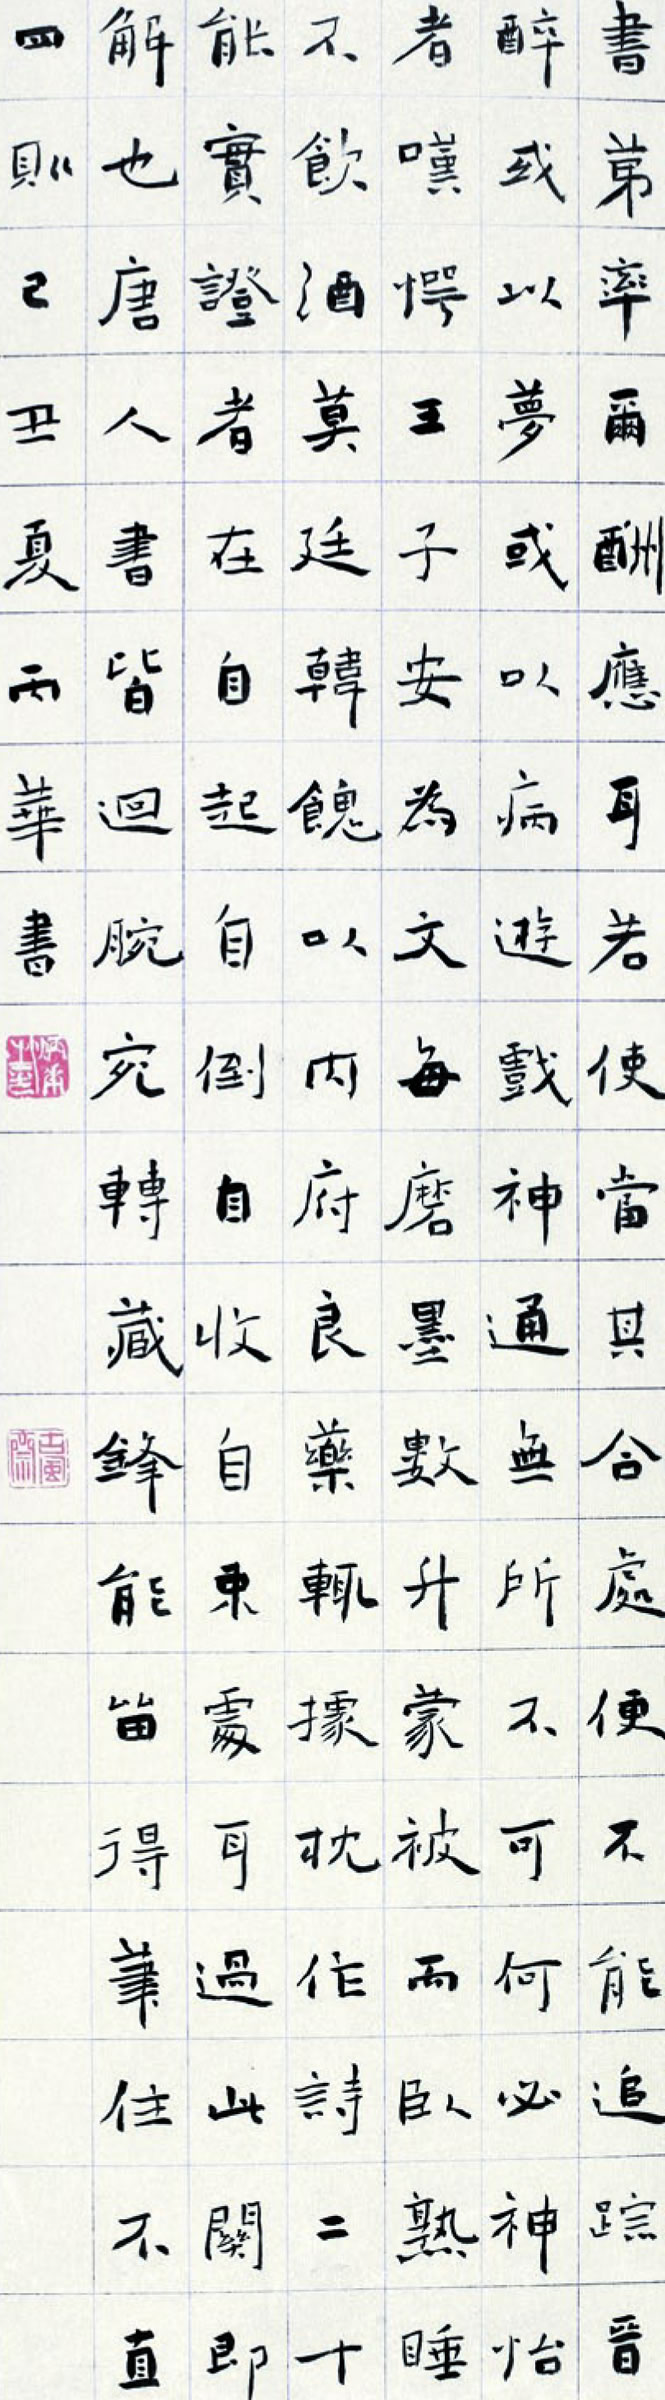 書弟率爾酬應耳若使當其合處便不能追踪晉
醉或以夢或以病遊戲神通無所不可何必神怡
者嘆愕王子安為文每磨墨數升蒙被而臥熟睡
不飲酒莫廷韓餽以內府良藥輒據枕作詩二十
能實證者在自起自倒自收自束處耳過此關即
解也唐人書皆迴腕宛轉藏鋒能留得筆住不直
四則己丑夏丙華書
古風齋